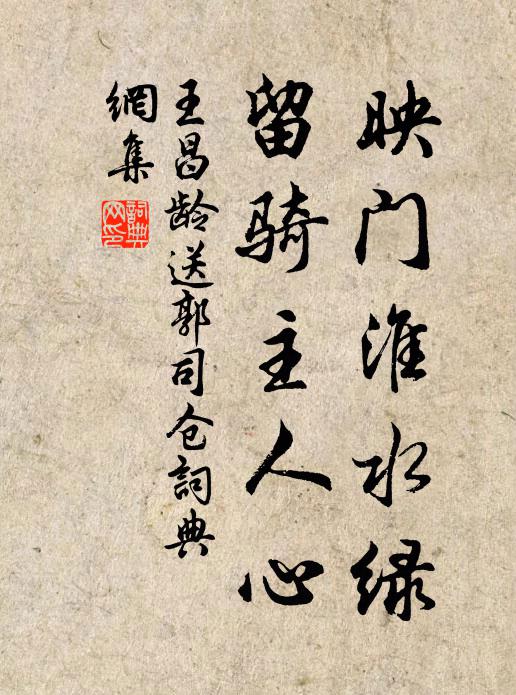 映门淮水绿
留骑主人心
王昌龄送郭司仓詞典
網集
詞典
网印